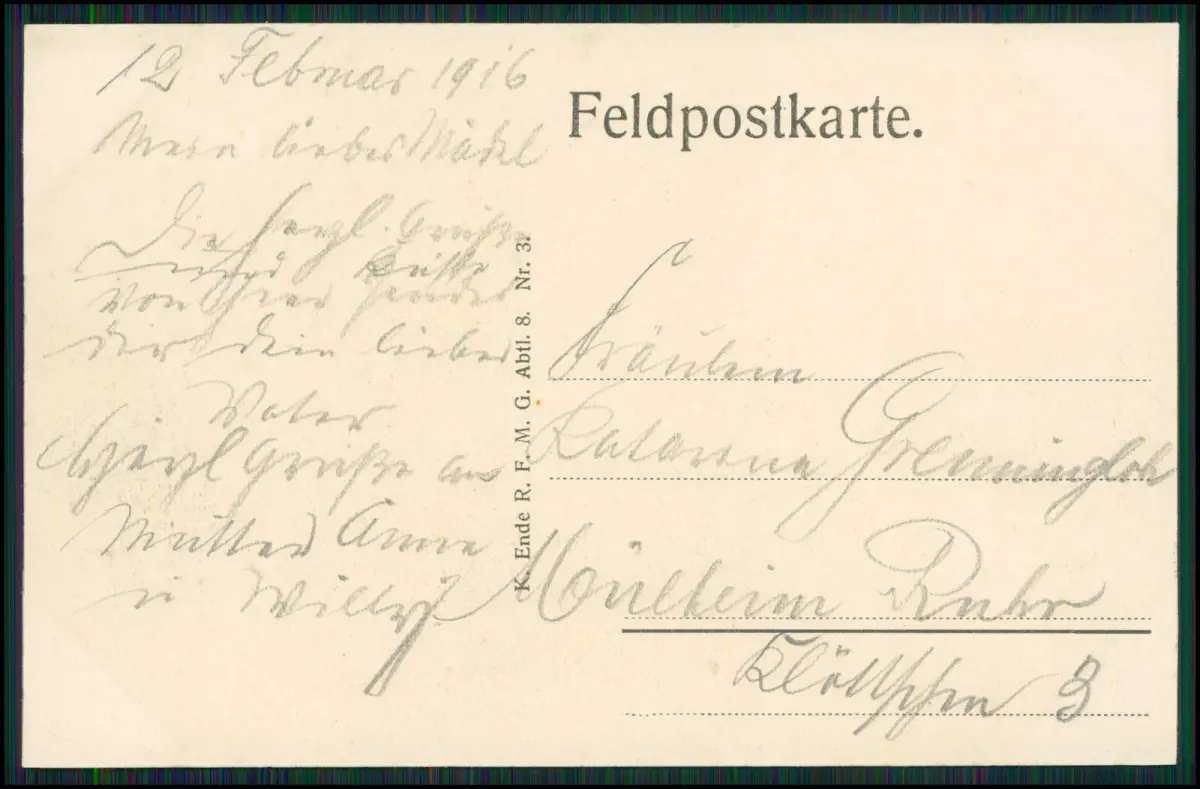 12 Februar 1916
Mein liebes Mädel
Die herzl. Grüße
von hier sendet
dir dein lieber
Vater
Herzl Grüße an
Mutter Anna
u Willy
Feldpostkarte.
K. Ende R. F. M. G. Abtl. 8. Nr. 3.
Fräulein
Katarina
Mülheim Ruhr
Klöttschen 3